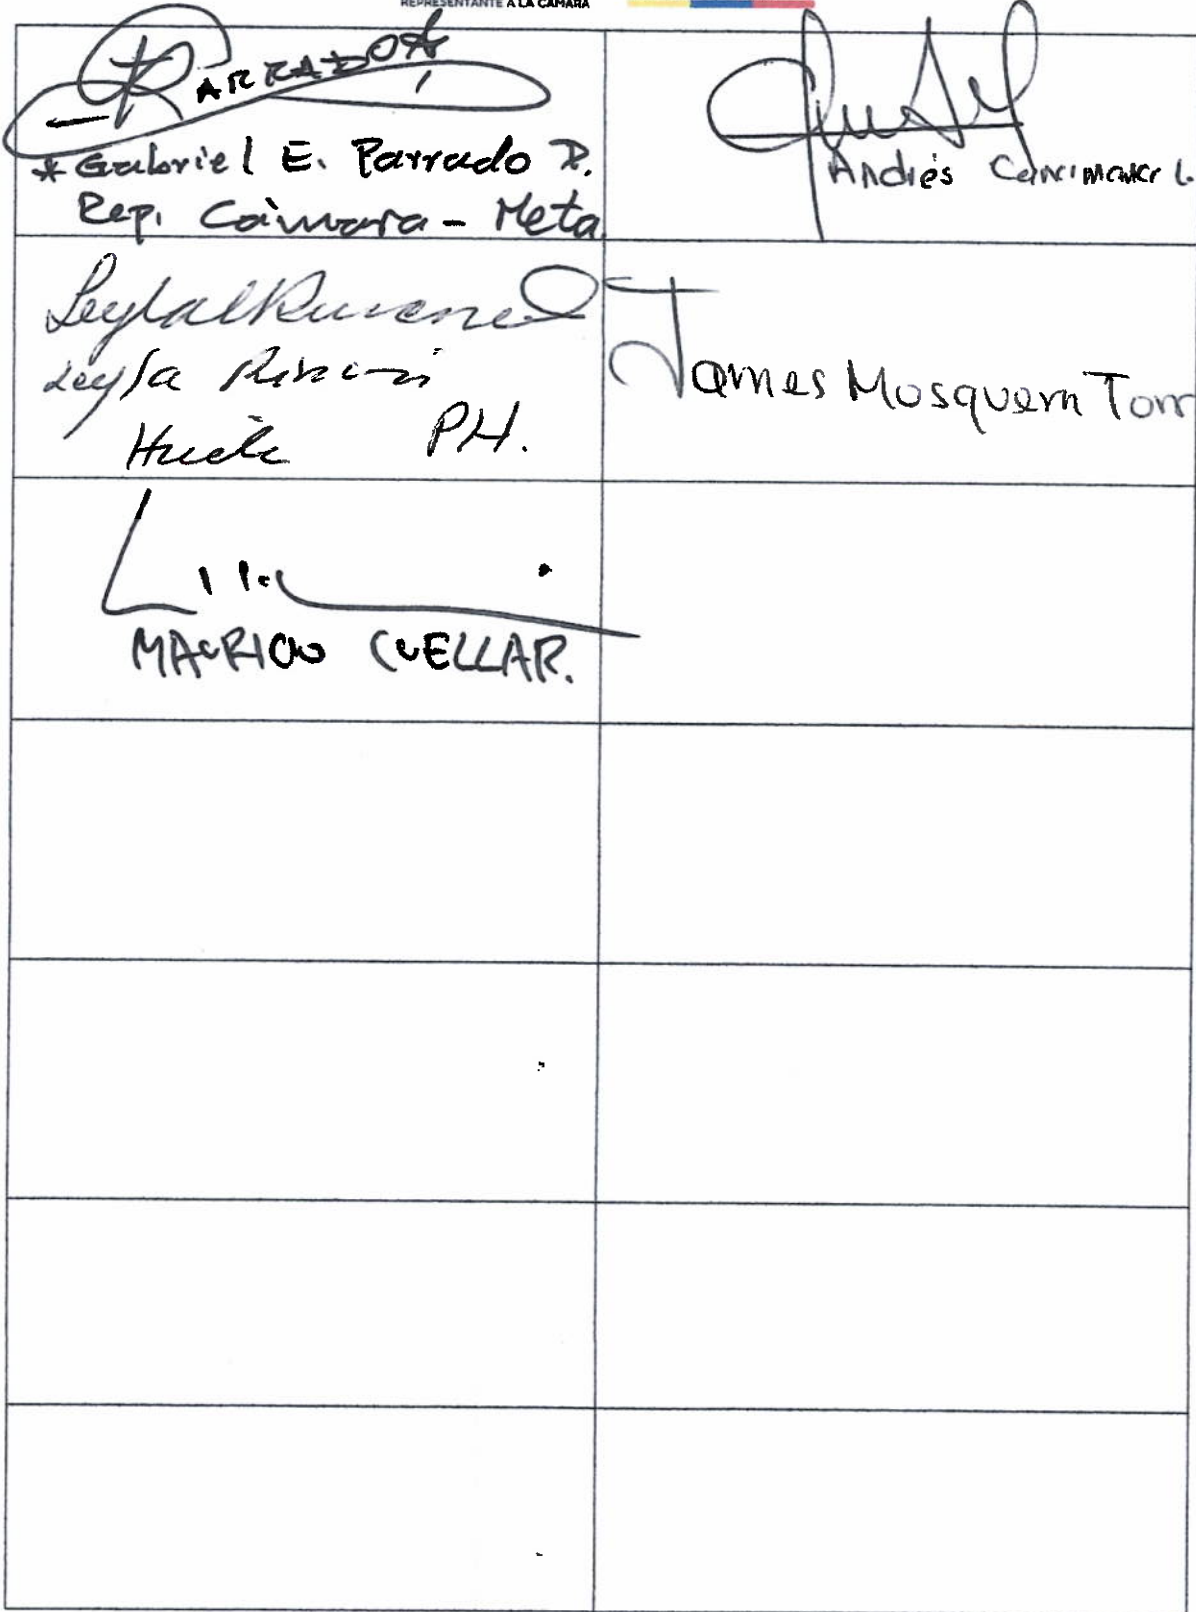 REPRESENTANTE A LA CÁMARA
PARRADO
* Gabriel E. Parrado D.
Rep. Cámara - Meta
Andrés Cancimance L.
Leyla Rincón
Huila PH.
James Mosquera Torr
MAURICIO CUELLAR.